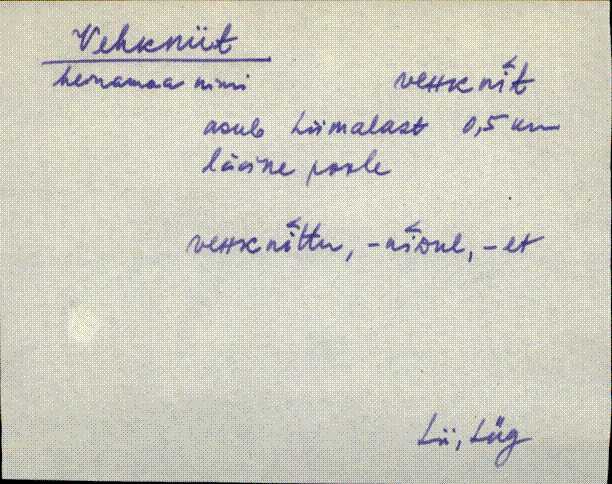 Vehkniit
heinamaa nimi veHKnít
asub Liimalast 0,5 km
lääne poole
veHKníttu, -níDul, -et
Lii, Lüg